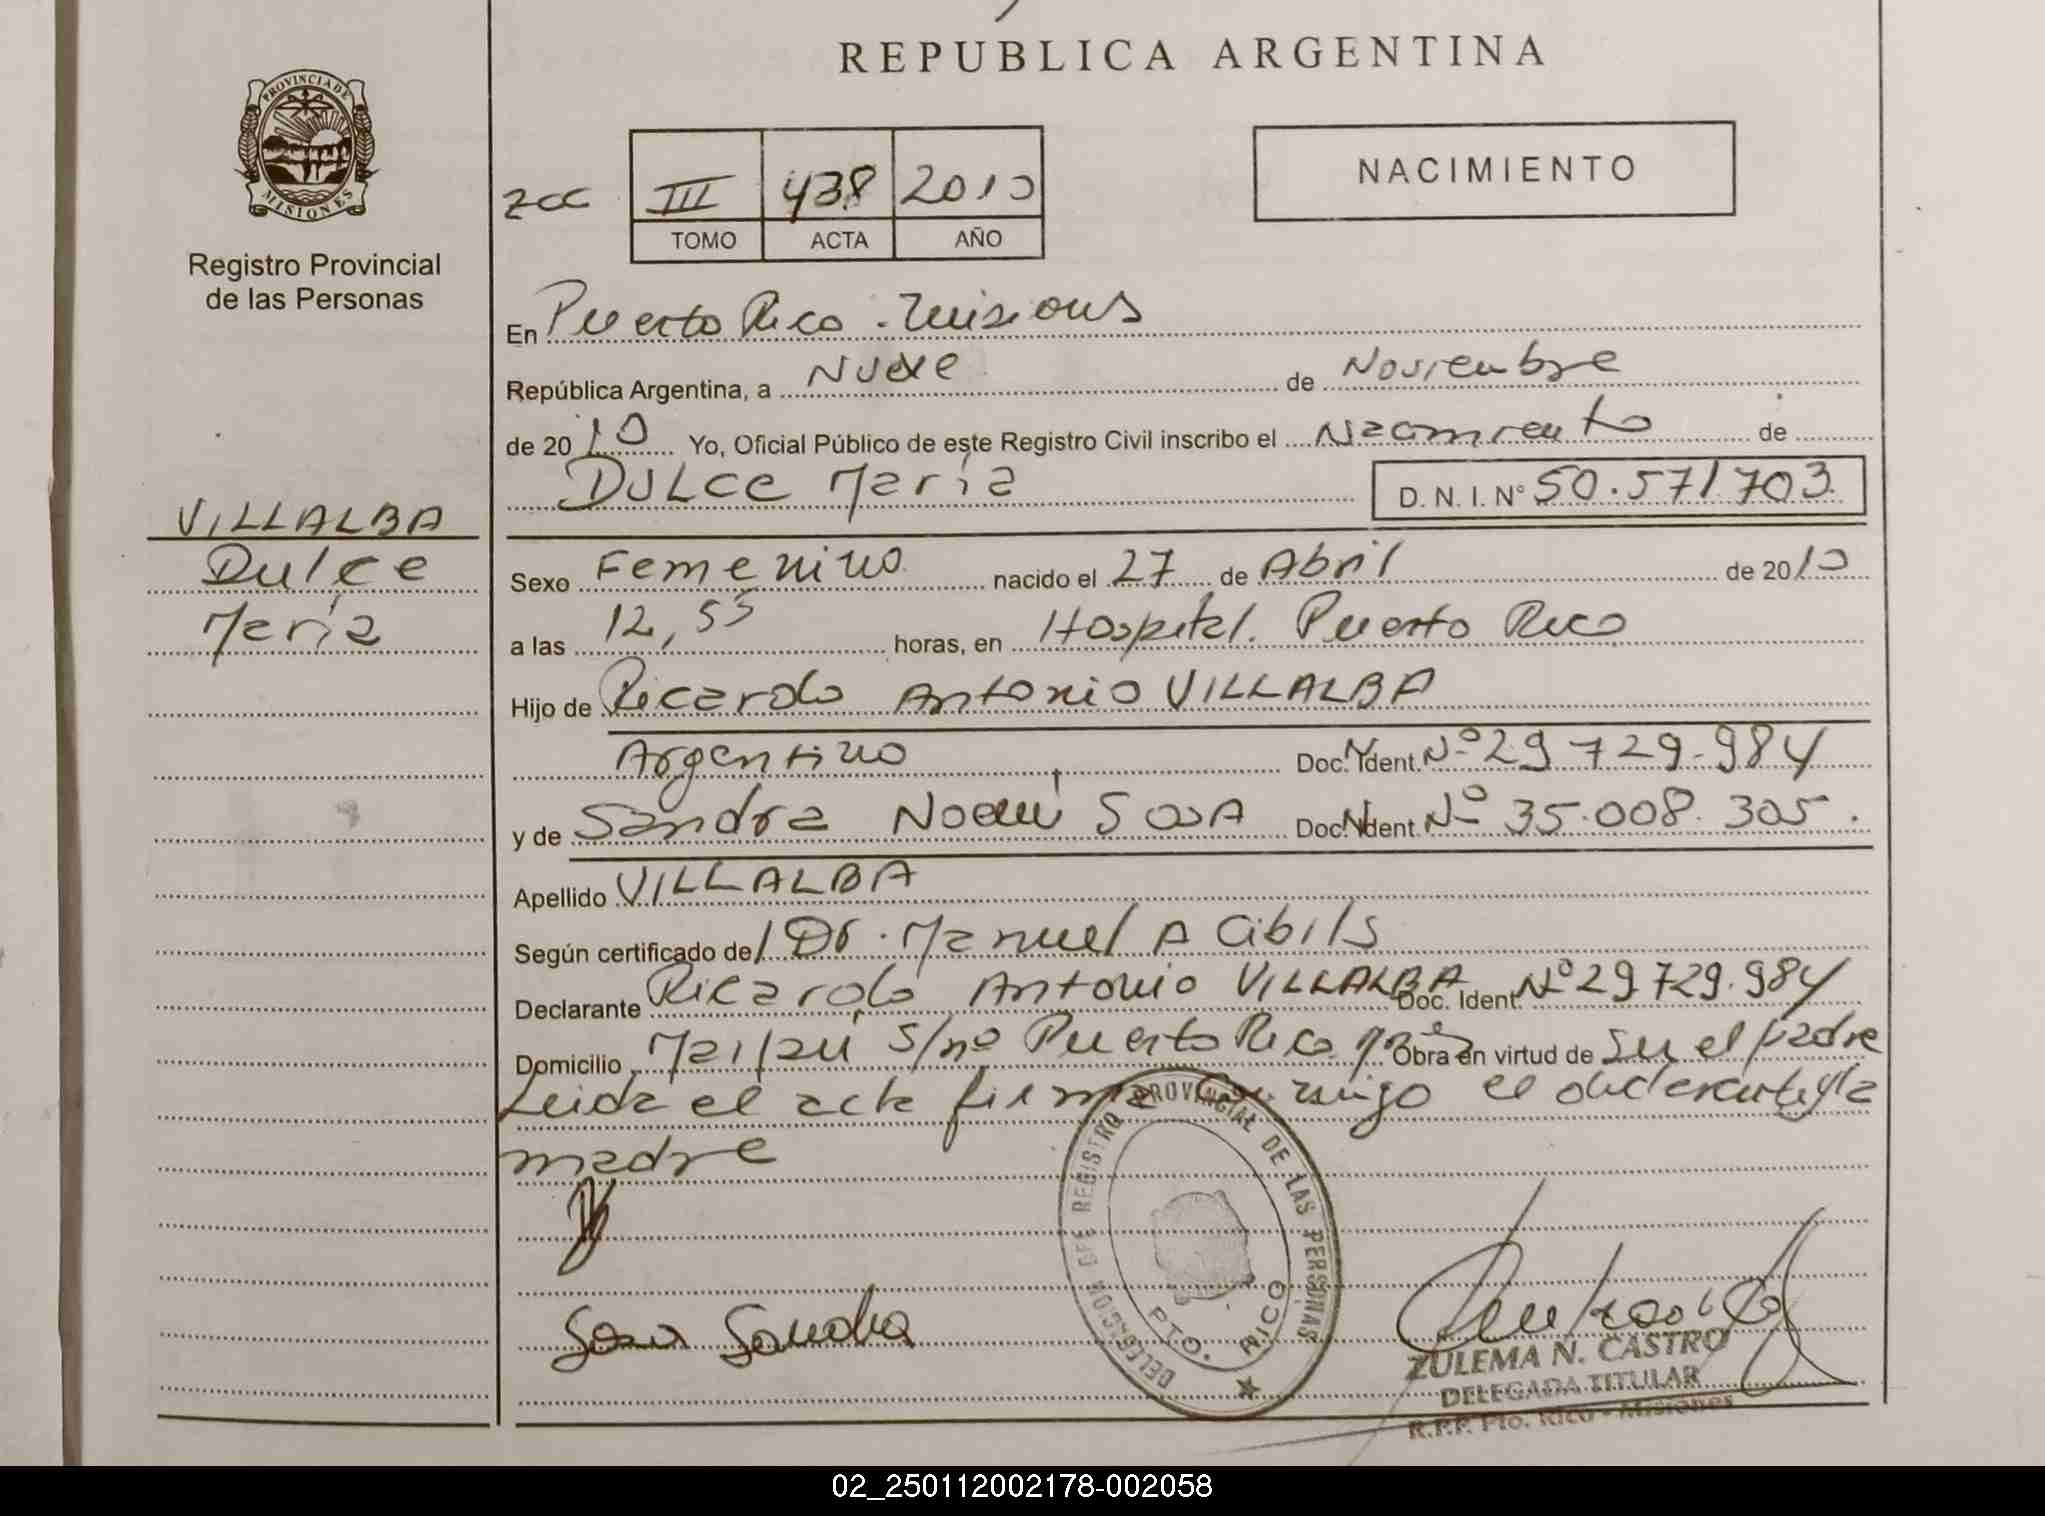 REPUBLICA ARGENTINA
PROVINCIA DE
MISIONES
Registro Provincial
de las Personas
NACIMIENTO
zcc III 438 2010
TOMO ACTA AÑO
En Puerto Rico - Misiones
República Argentina, a Nueve de Noviembre
de 2010 Yo, Oficial Público de este Registro Civil inscribo el Nacimiento de
Dulce María D. N. I. N° 50.571703
VILLALBA
Dulce
María
Sexo Femenino nacido el 27 de Abril de 2010
a las 12,55 horas, en Hospital. Puerto Rico
Hijo de Ricardo Antonio VILLALBA
Argentino Doc. Ident. Nº 29 729.984
y de Sandra Noemí SOSA Doc. Ident. Nº 35.008.305.
Apellido VILLALBA
Según certificado del Dr. Manuel A Cibils
Declarante Ricardo Antonio VILLALBA Doc. Ident. Nº 29.729.984
Domicilio s/nº Puerto Rico Obra en virtud de Su el padre
Leida el acta firma conmigo el declarante y la
madre
Sosa Sandra
DELEGACION DEL REGISTRO PROVINCIAL DE LAS PERSONAS
PTO. RICO
ZULEMA N. CASTRO
DELEGADA TITULAR
R.P.P. Pto. Rico - Misiones
02_250112002178-002058